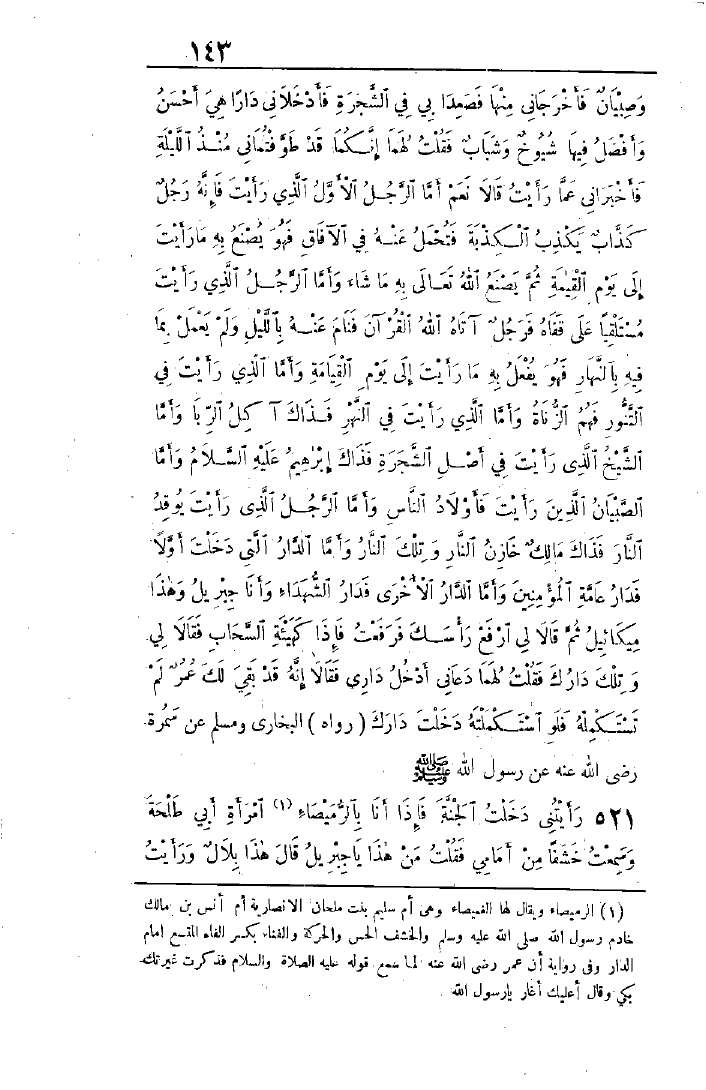 ١٤٣
وَصِبْيَانٌ فَأَخْرَجَانِى مِنْهَا فَصَعِدَا بِي فِي الشَّجَرَةِ فَأَدْخَلَانِى دَارًا هِيَ أَحْسَنُ
وَأَفْضَلُ فِيهَا شُيُوخٌ وَشَبَابٌ فَقُلْتُ لَهُمَا إِنَّكُمَا قَدْ طَوَّفْتُمَانِى مُنْذُ اللَّيْلَةِ
فَأَخْبِرَانِى عَمَّا رَأَيْتُ قَالَا نَعَمْ أَمَّا الرَّجُلُ الْأَوَّلُ الَّذِي رَأَيْتَ فَإِنَّهُ رَجُلٌ
كَذَّابٌ يَكْذِبُ الْكِذْبَةَ فَتُحْمَلُ عَنْهُ فِي الْآفَاقِ فَهُوَ يُصْنَعُ بِهِ مَارَأَيْتَ
إِلَى يَوْمِ الْقِيَٰمَةِ ثُمَّ يَصْنَعُ اللّٰهُ تَعَالَى بِهِ مَا شَاءَ وَأَمَّا الرَّجُلُ الَّذِي رَأَيْتَ
مُسْتَلْقِيًا عَلَى قَفَاهُ فَرَجُلٌ آتَاهُ اللّٰهُ الْقُرْآنَ فَنَامَ عَنْهُ بِاللَّيْلِ وَلَمْ يَعْمَلْ بِمَا
فِيهِ بِالنَّهَارِ فَهُوَ يُفْعَلُ بِهِ مَا رَأَيْتَ إِلَى يَوْمِ الْقِيَامَةِ وَأَمَّا الَّذِي رَأَيْتَ فِي
التَّنُّورِ فَهُمُ الزُّنَاةُ وَأَمَّا الَّذِي رَأَيْتَ فِي النَّهْرِ فَذَاكَ آكِلُ الرِّبَا وَأَمَّا
الشَّيْخُ الَّذِى رَأَيْتَ فِي أَصْلِ الشَّجَرَةِ فَذَاكَ إِبْرٰهِيمُ عَلَيْهِ السَّلَامُ وَأَمَّا
الصِّبْيَانُ الَّذِينَ رَأَيْتَ فَأَوْلَادُ النَّاسِ وَأَمَّا الرَّجُلُ الَّذِى رَأَيْتَ يُوقِدُ
النَّارَ فَذَاكَ مَالِكٌ خَازِنُ النَّارِ وَتِلْكَ النَّارُ وَأَمَّا الدَّارُ الَّتِي دَخَلْتَ أَوَّلًا
فَدَارُ عَامَّةِ الْمُؤْمِنِينَ وَأَمَّا الدَّارُ الْأُخْرَى فَدَارُ الشُّهَدَاءِ وَأَنَا جِبْرِيلُ وَهٰذَا
مِيكَائِيلُ ثُمَّ قَالَا لِي ارْفَعْ رَأْسَكَ فَرَفَعْتُ فَإِذَا كَهَيْئَةِ السَّحَابِ فَقَالَا لِي
وَتِلْكَ دَارُكَ فَقُلْتُ لَهُمَا دَعَانِى أَدْخُلُ دَارِي فَقَالَا إِنَّهُ قَدْ بَقِيَ لَكَ عُمُرٌ لَمْ
تَسْتَكْمِلْهُ فَلَوِ اسْتَكْمَلْتَهُ دَخَلْتَ دَارَكَ ( رواه ) البخارى ومسلم عن سَمُرة
رضى الله عنه عن رسول الله ﷺ
٥٢١ رَأَيْتُنِى دَخَلْتُ الْجَنَّةَ فَإِذَا أَنَا بِالرُّمَيْصَاءِ (١) امْرَأَةِ أَبِي طَلْحَةَ
وَسَمِعْتُ خَشَفًا مِنْ أَمَامِي فَقُلْتُ مَنْ هٰذَا يَاجِبْرِيلُ قَالَ هٰذَا بِلَالٌ وَرَأَيْتُ
(١) الرميصاء ويقال لها الغميصاء وهى أم سليم بنت ملحان الانصارية أم أنس بن مالك
خادم رسول الله صلى الله عليه وسلم والخشف الحس والحركة والفناء بكسر الفاء المتسع امام
الدار وفى رواية أن عمر رضى الله عنه لما سمع قوله عليه الصلاة والسلام فذكرت غيرتك
بكى وقال أعليك أغار يارسول الله